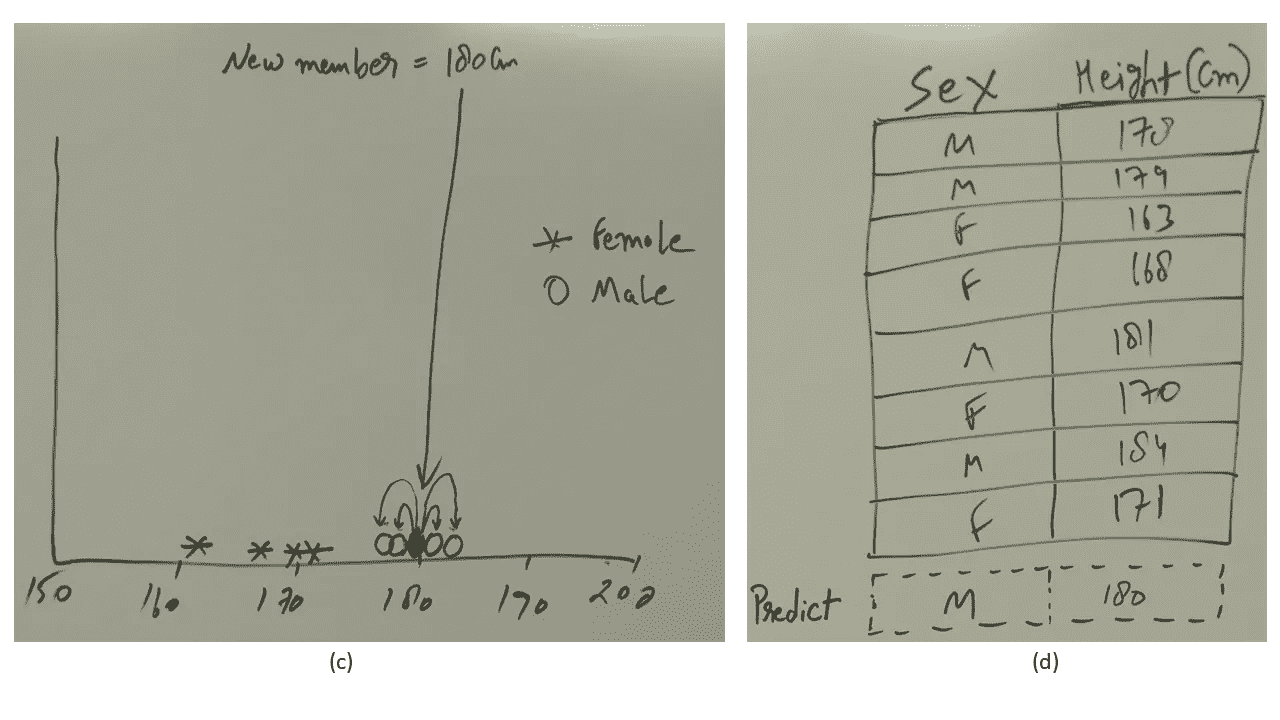 New member = 180 Cm
* Female
O Male
150 160 170 180 190 200
(c)
Sex Height (Cm)
M 178
M 179
F 163
F 168
M 181
F 170
M 184
F 171
Predict M 180
(d)